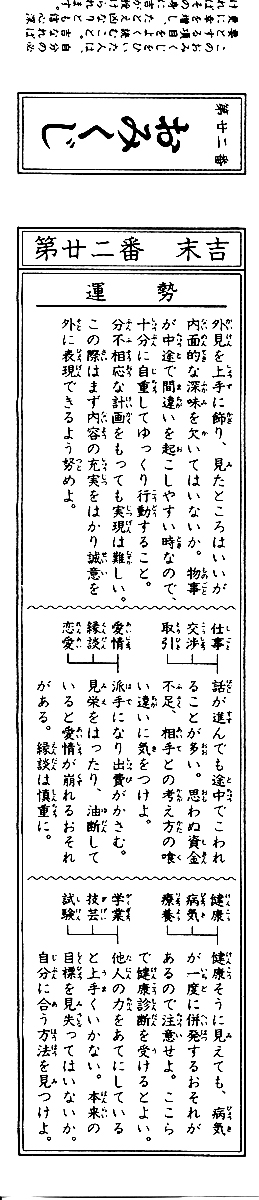 このおみくじをひいた人は、自分の必
要とする項目をたとえ凶なりとも心深
第廿二番
おみくじ
第廿二番 末吉
運勢
外見を上手に飾り、見たところはいいが
内面的な深味を欠いてはいないか。物事
が中途で間違いを起こしやすい時なので、
十分に自重してゆっくり行動すること。
分不相応な計画をもっても実現は難しい。
この際はまず内容の充実をはかり誠意を
外に表現できるよう努めよ。
仕事
交渉
取引
話が進んでも途中でこわれ
ることが多い。思わぬ資金
不足、相手との考え方の喰
い違いに気をつけよ。
愛情
縁談
恋愛
派手になり出費がかさむ。
見栄をはったり、油断して
いると愛情が崩れるおそれ
がある。縁談は慎重に。
健康
病気
療養
健康そうに見えても、病気
が一度に併発するおそれが
あるので注意せよ。ここら
で健康診断を受けるとよい。
学業
技芸
試験
他人の力をあてにしている
と上手くいかない。本来の
目標を見失ってはいないか。
自分に合う方法を見つけよ。